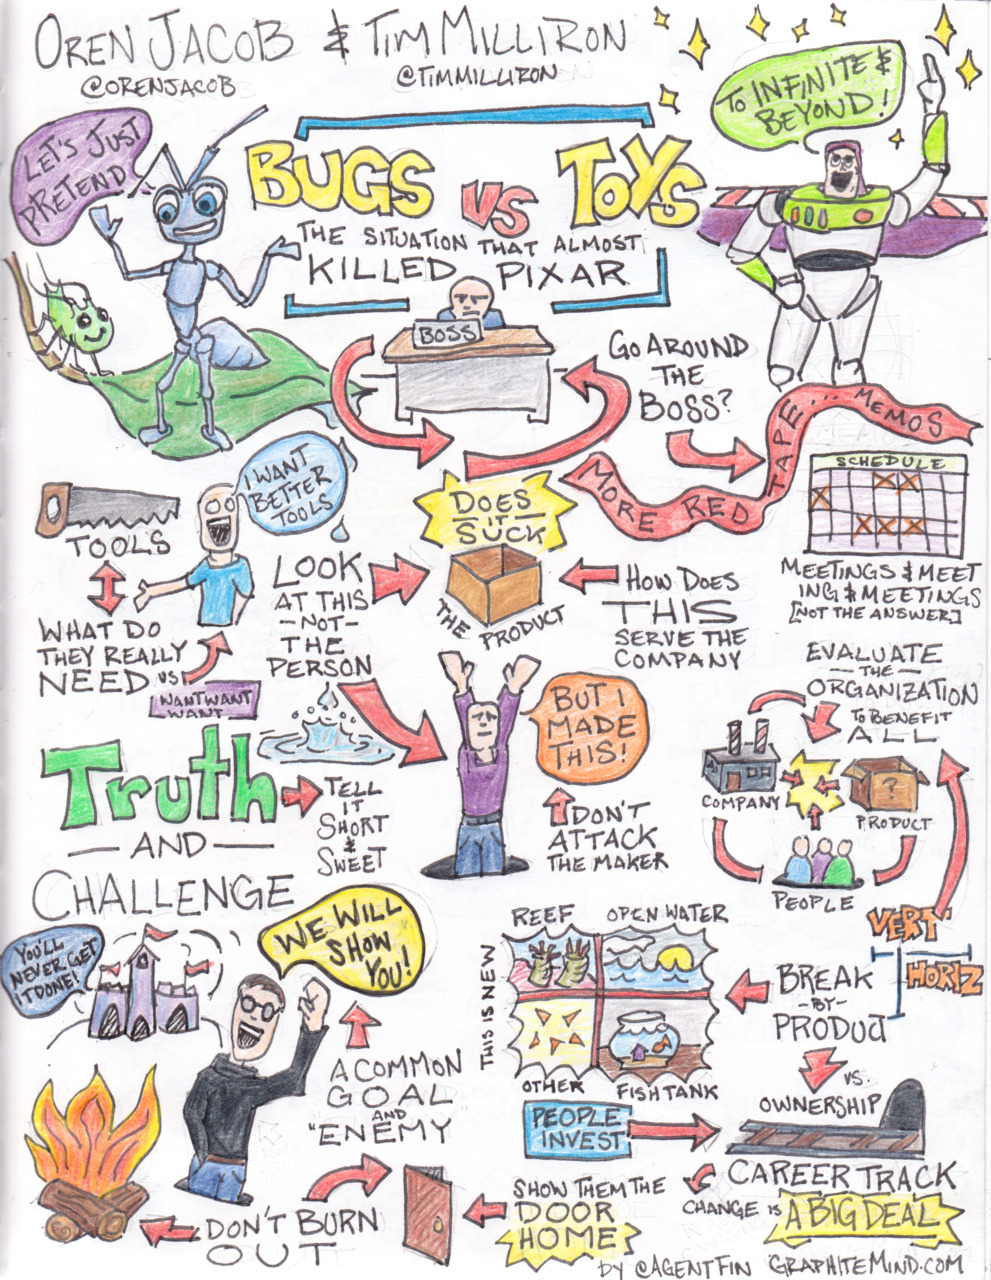 OREN JACOB & TIM MILLIRON
@ORENJACOB
@TIMMILLIRON
TO INFINITE &
BEYOND!
LET'S JUST
PRETEND
BUGS VS TOYS
THE SITUATION THAT ALMOST
KILLED PIXAR
BOSS
GO AROUND
THE
BOSS?
MORE RED TAPE... MEMOS
SCHEDULE
MEETINGS & MEET
ING & MEETINGS
[NOT THE ANSWER]
I WANT
BETTER
TOOLS
TOOLS
WHAT DO
THEY REALLY
NEED VS
WANT WANT
WANT
LOOK
AT THIS
-NOT-
THE
PERSON
DOES
IT
SUCK
THE PRODUCT
HOW DOES
THIS
SERVE THE
COMPANY
EVALUATE
-THE-
ORGANIZATION
TO BENEFIT
ALL
COMPANY
?
PRODUCT
PEOPLE
BUT I
MADE
THIS!
DON'T
ATTACK
THE MAKER
Truth
-AND-
CHALLENGE
TELL
IT
SHORT
&
SWEET
YOU'LL
NEVER GET
IT DONE!
WE WILL
SHOW
YOU!
A COMMON
GOAL
AND
"ENEMY"
REEF
OPEN WATER
THIS IS NEW
OTHER
FISHTANK
VERT
HORIZ
BREAK
-BY-
PRODUCT
VS.
OWNERSHIP
PEOPLE
INVEST
CAREER TRACK
CHANGE IS A BIG DEAL
SHOW THEM THE
DOOR
HOME
DON'T BURN
OUT
BY @AGENTFIN GRAPHITEMIND.COM